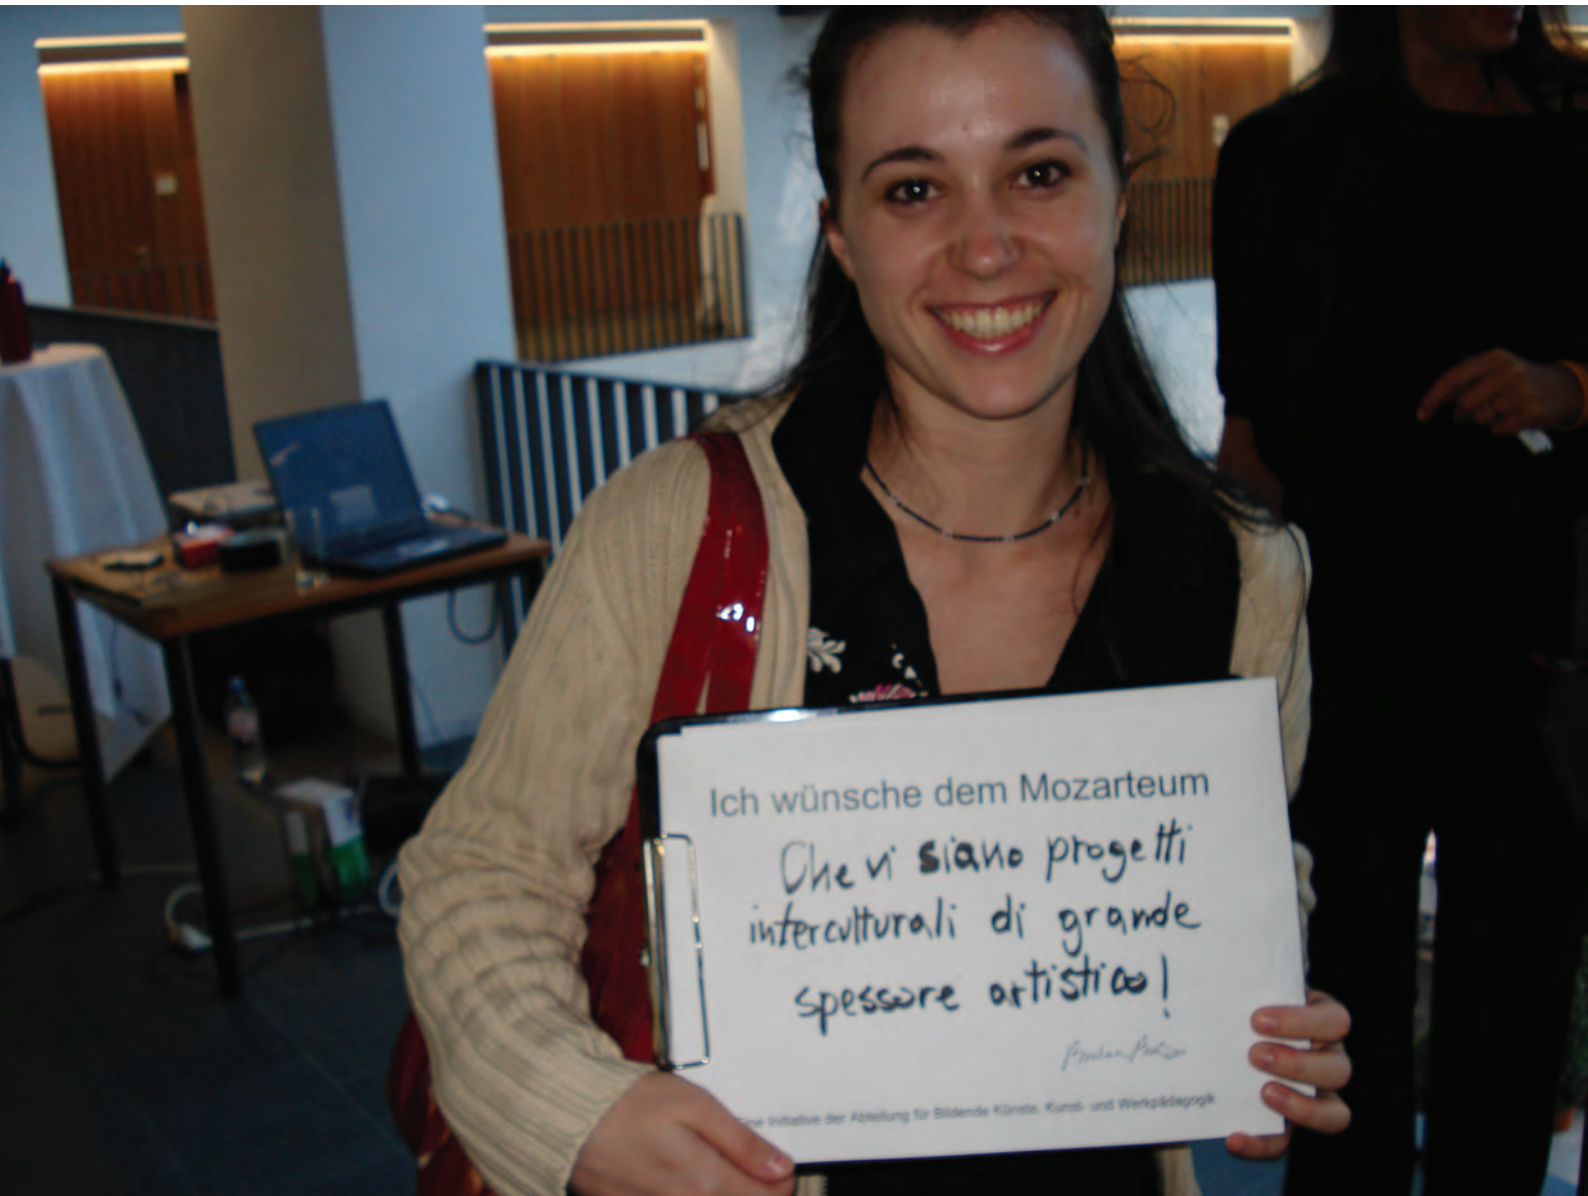 Ich wünsche dem Mozarteum
Che vi siano progetti
interculturali di grande
spessore artistico!
Eine Initiative der Abteilung für Bildende Künste, Kunst- und Werkpädagogik